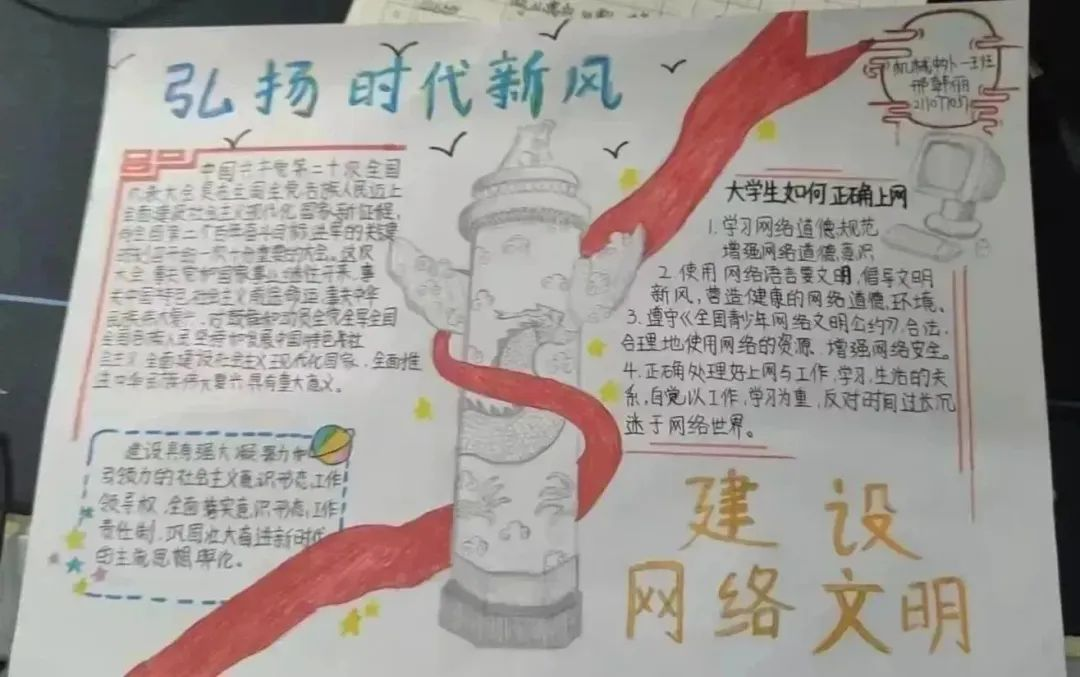 弘扬时代新风
机械
中国共产党第二十次全国
代表大会是在全国全党各族人民迈上
全面建设社会主义现代化国家新征程,
向全国第二个百年奋斗目标进军的关键
时刻召开的一次十分重要的大会。这次
大会,事关党和国家事业继往开来,事
关中国特色社会主义前途命运,事关中华
民族伟大复兴,对鼓舞和动员全党全军全国
全国各族人民坚持和发展中国特色社
会主义,全面建设社会主义现代化国家,全面推
进中华民族伟大复兴具有重大意义。
建设具有强大凝聚力和
引领力的社会主义意识形态工作
领导权,全面落实意识形态工作
责任制,巩固壮大奋进新时代
的主流思想舆论。
大学生如何正确上网
1.学习网络道德规范
增强网络道德意识
2.使用网络语言要文明,倡导文明
新风,营造健康的网络道德环境。
3.遵守《全国青少年网络文明公约》,合法,
合理地使用网络的资源,增强网络安全。
4.正确处理好上网与工作,学习,生活的关
系,自觉以工作,学习为重,反对时间过长沉
迷于网络世界。
建设
网络文明